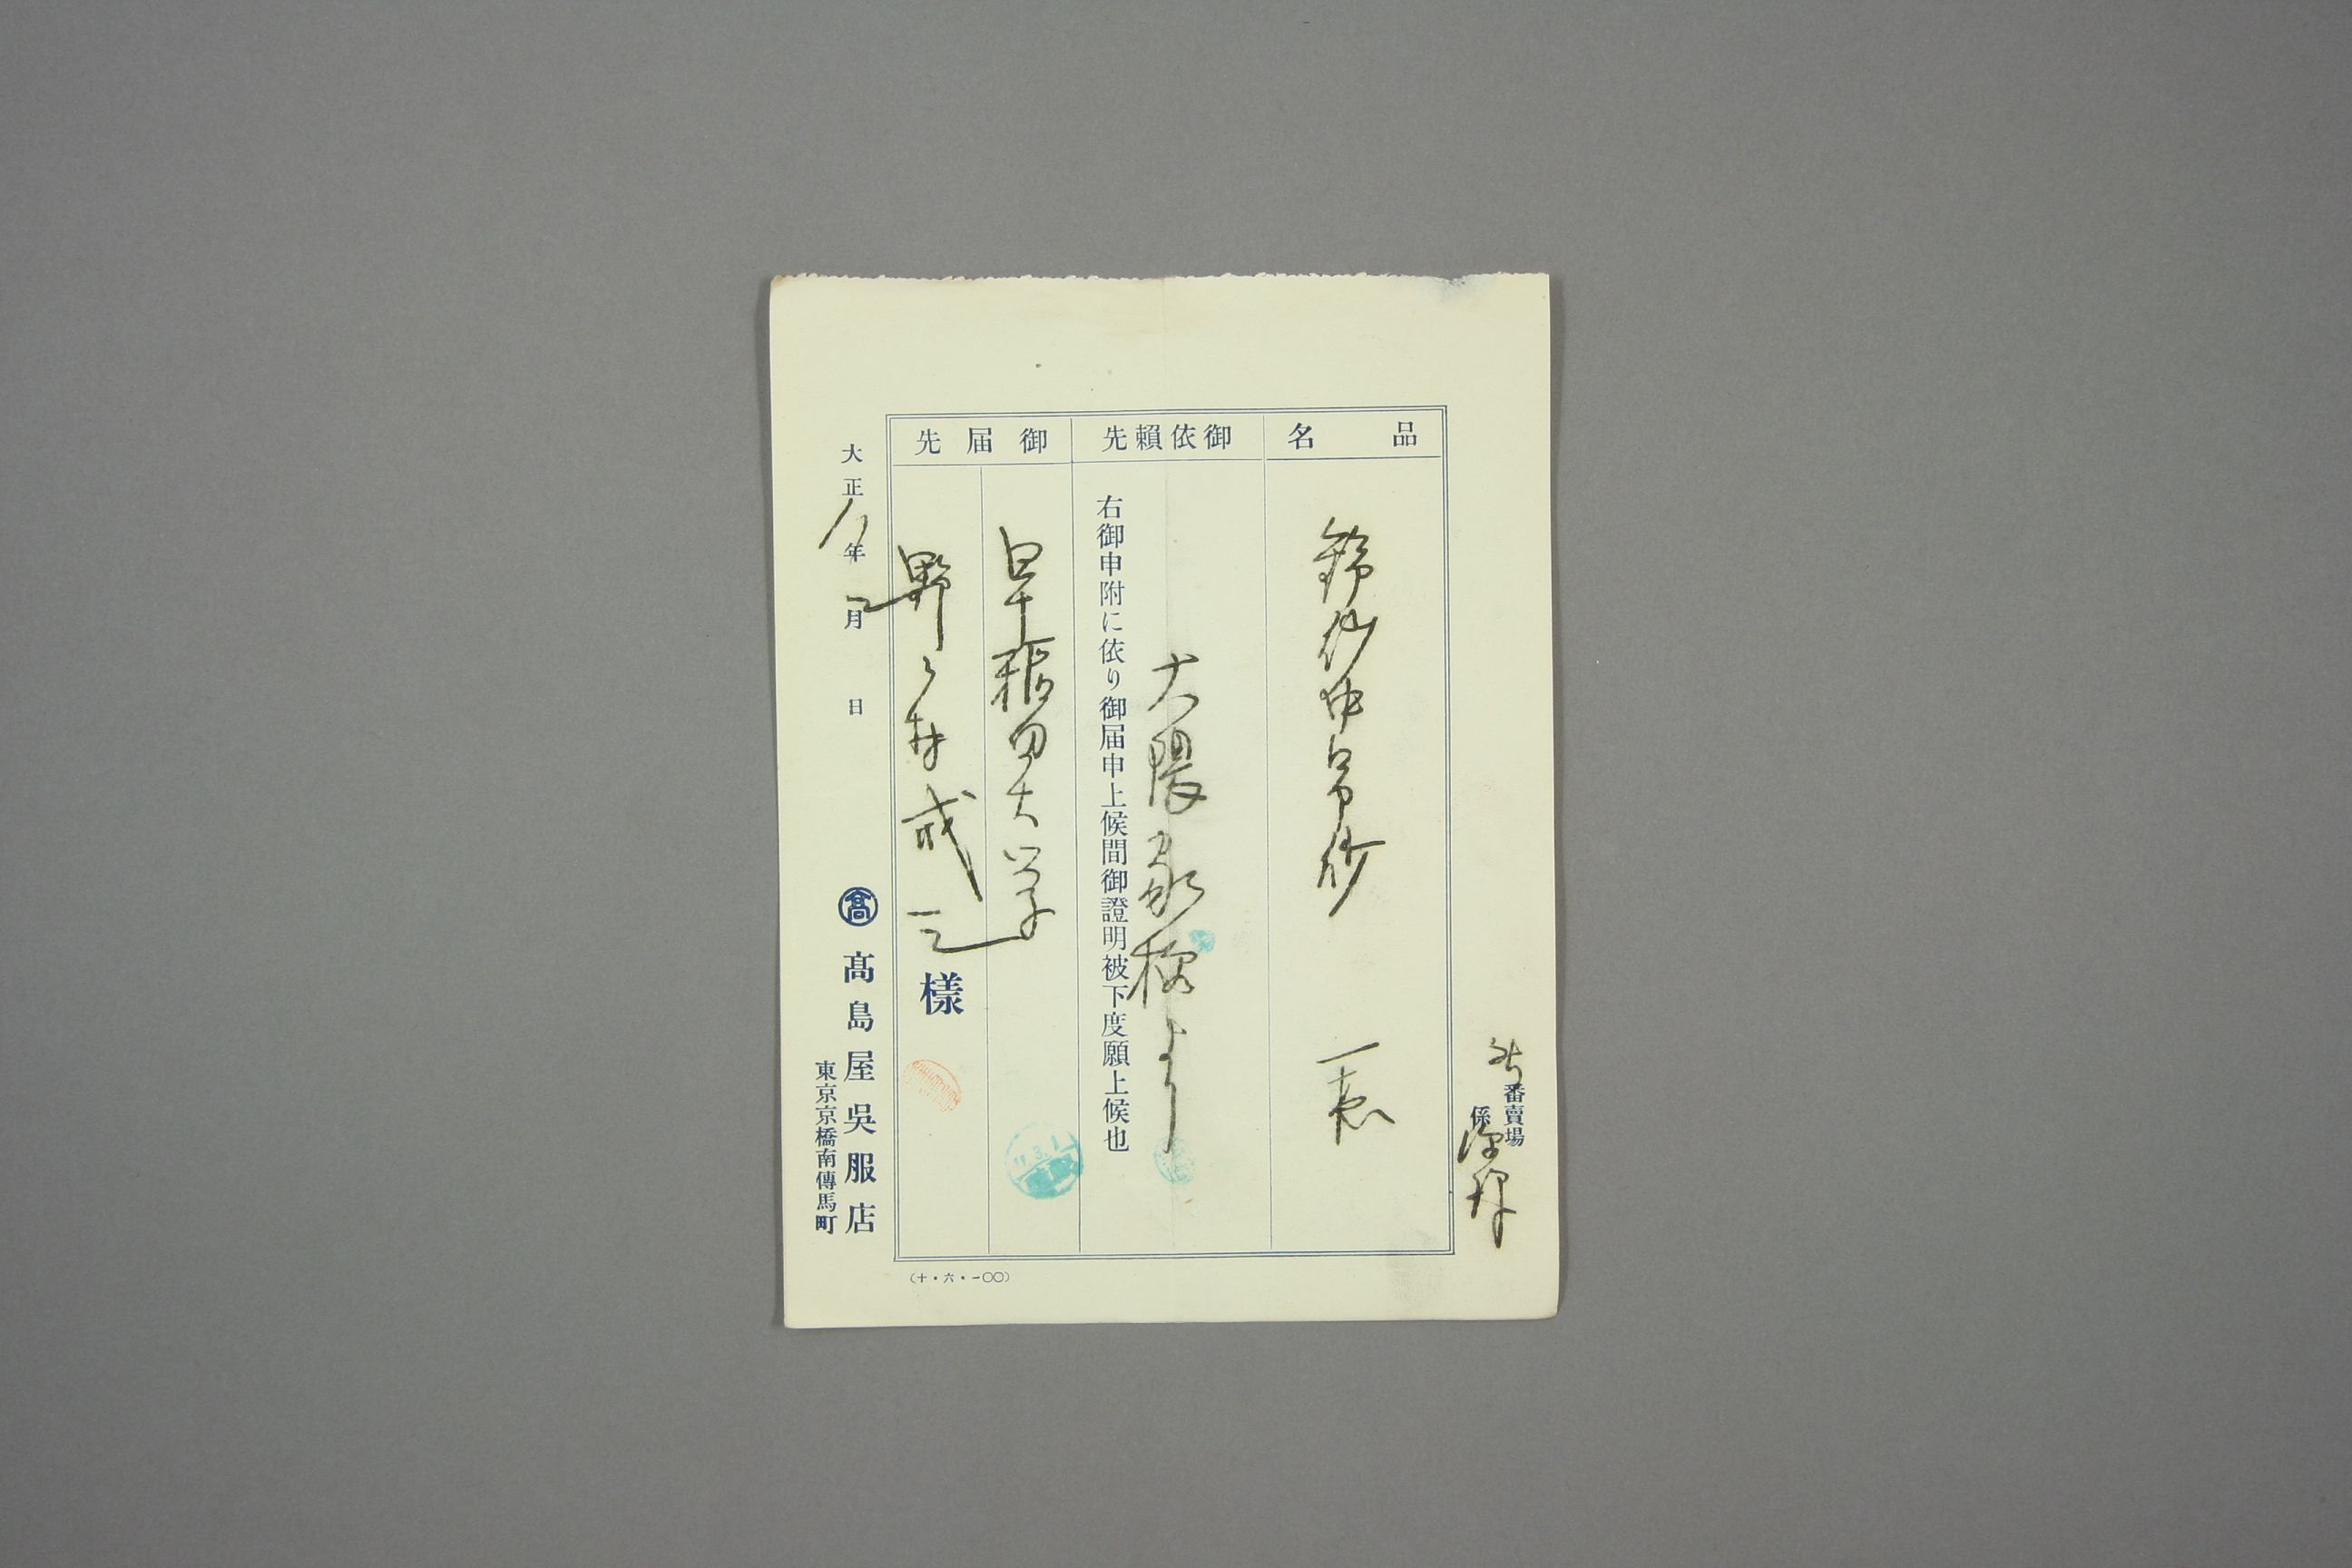 番賣場
係
品名
仲帛紗 一
御依賴先
大隈家様より
右御申附に依り御届申上候間御證明被下度願上候也
御届先
早稲田大学
野々村戒三様
大正11年二月 日
髙 髙島屋吳服店
東京京橋南傳馬町
(十・六・一〇〇)
11.3.1